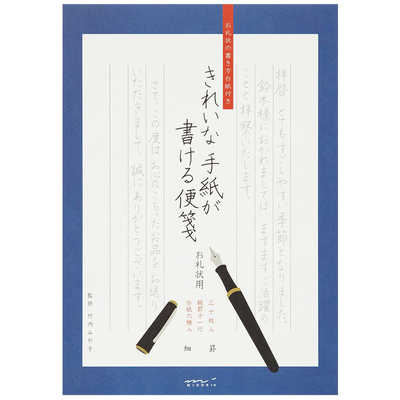 お礼状の書き方台紙付き
拝啓 とてもすごしやすい季節となりました。
鈴木様におかれましては、ますますご活躍の
ことと拝察いたします。
きれいな手紙が
書ける便箋
お礼状用
さて、この度は
誠にありがとうございます。
三十枚入
縦罫十一行
台紙六種入
細 罫
監修 竹内みや子
MIDORI